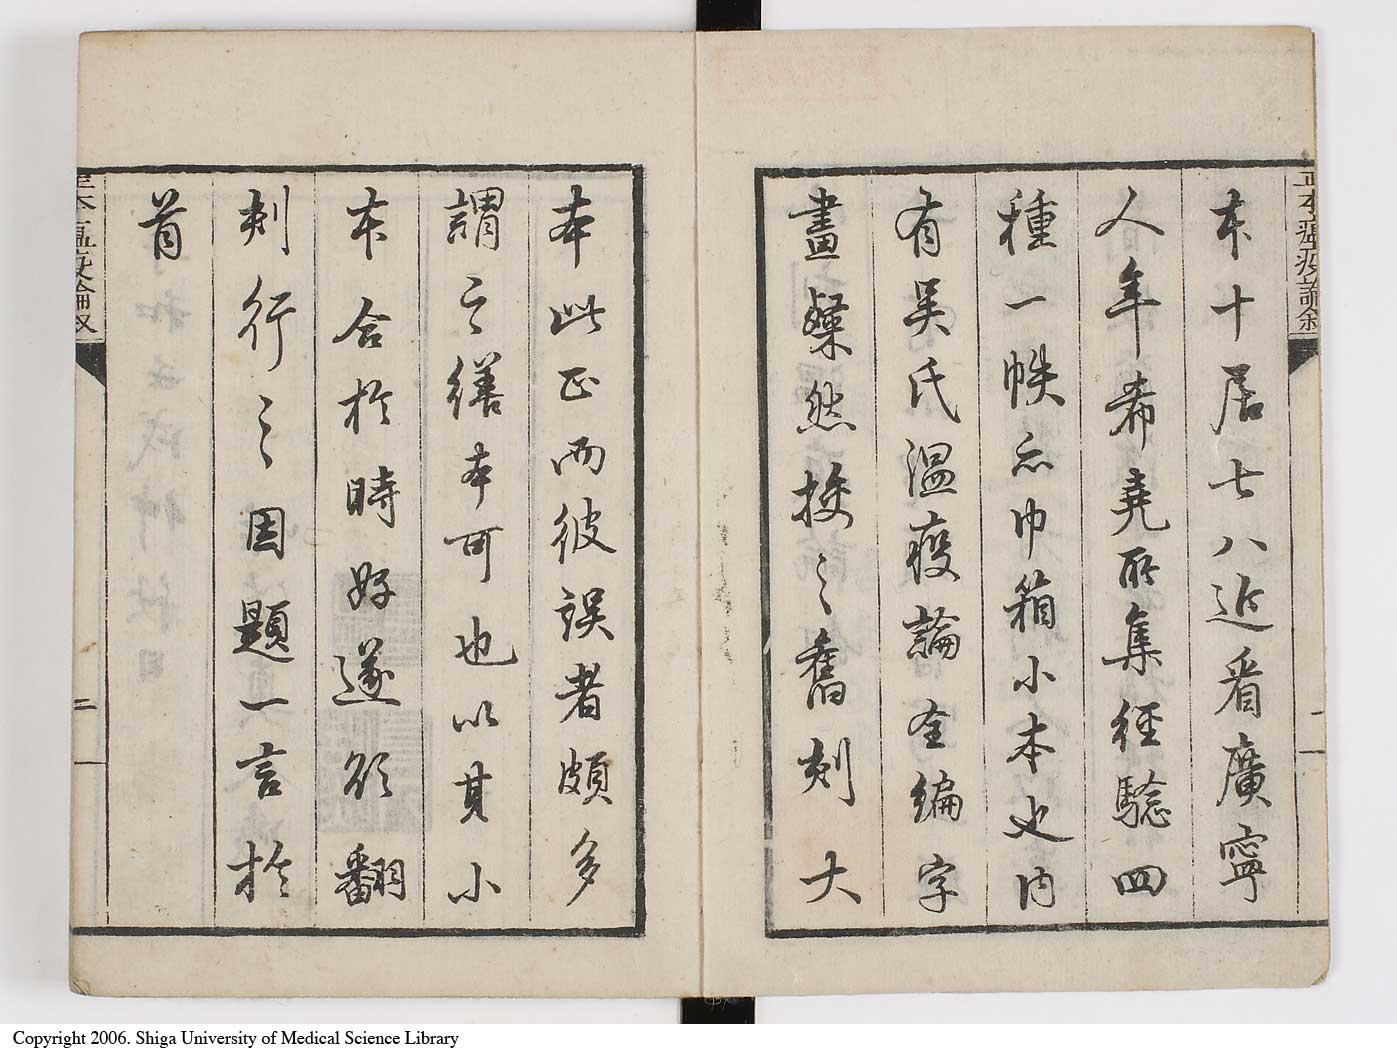 本十居七八近看廣寧
人年希堯所集經驗四
種一帙亦巾箱小本也内
有吴氏温疫論全編字
畫燦然挍之舊刻大
本此正而彼誤者頗多
謂之善本可也以其小
本合於時好遂欲翻
刻行之因題一言於
首
Copyright 2006. Shiga University of Medical Science Library